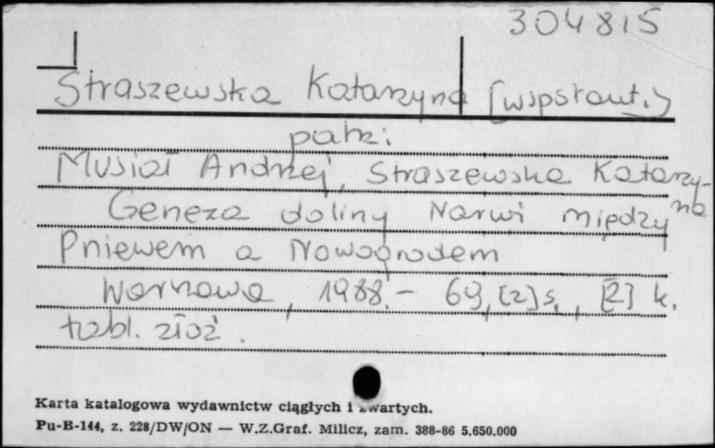 304815
Straszewska Katarzyna [wspołaut.]
patrz:
Musiał Andrzej, Straszewska Katarzy-
na
Geneza doliny Narwi między
Pniewem a Nowogrodem
Warszawa, 1988.- 69,[2]s., [2] k.
tabl. złoż.
Karta katalogowa wydawnictw ciągłych i zwartych.
Pu-B-144, z. 228/DW/ON — W.Z.Graf. Milicz, zam. 388-86 5.650.000